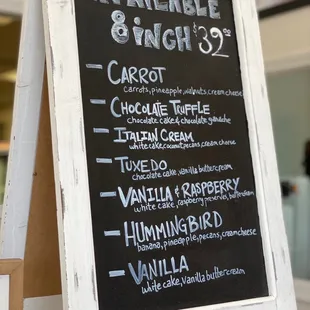 AVAILABLE
8 iNGH $32
- CARROT
carrots, pineapple, walnuts, cream cheese
- CHOCOLATE TRUFFLE
chocolate cake & chocolate ganache
- ITALIAN CREAM
white cake, coconut, pecans, cream cheese
- TUXEDO
chocolate cake, vanilla buttercream
- VANILLA & RASPBERRY
white cake, raspberry preserves, buttercream
- HUMMINGBIRD
banana, pineapple, pecans, cream cheese
- VANILLA
white cake, vanilla buttercream